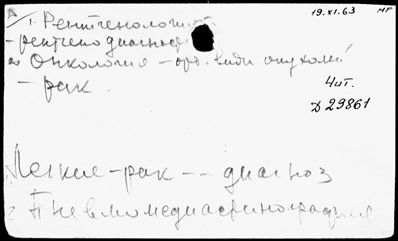 1. Рентгенология 19.XI.63 МР
- рентгенодиагнос
Онкология - отд. виды опухолей
- рак Чит.
Д 29861
Легкие - рак - - диагноз
2 Пневмомедиастинография